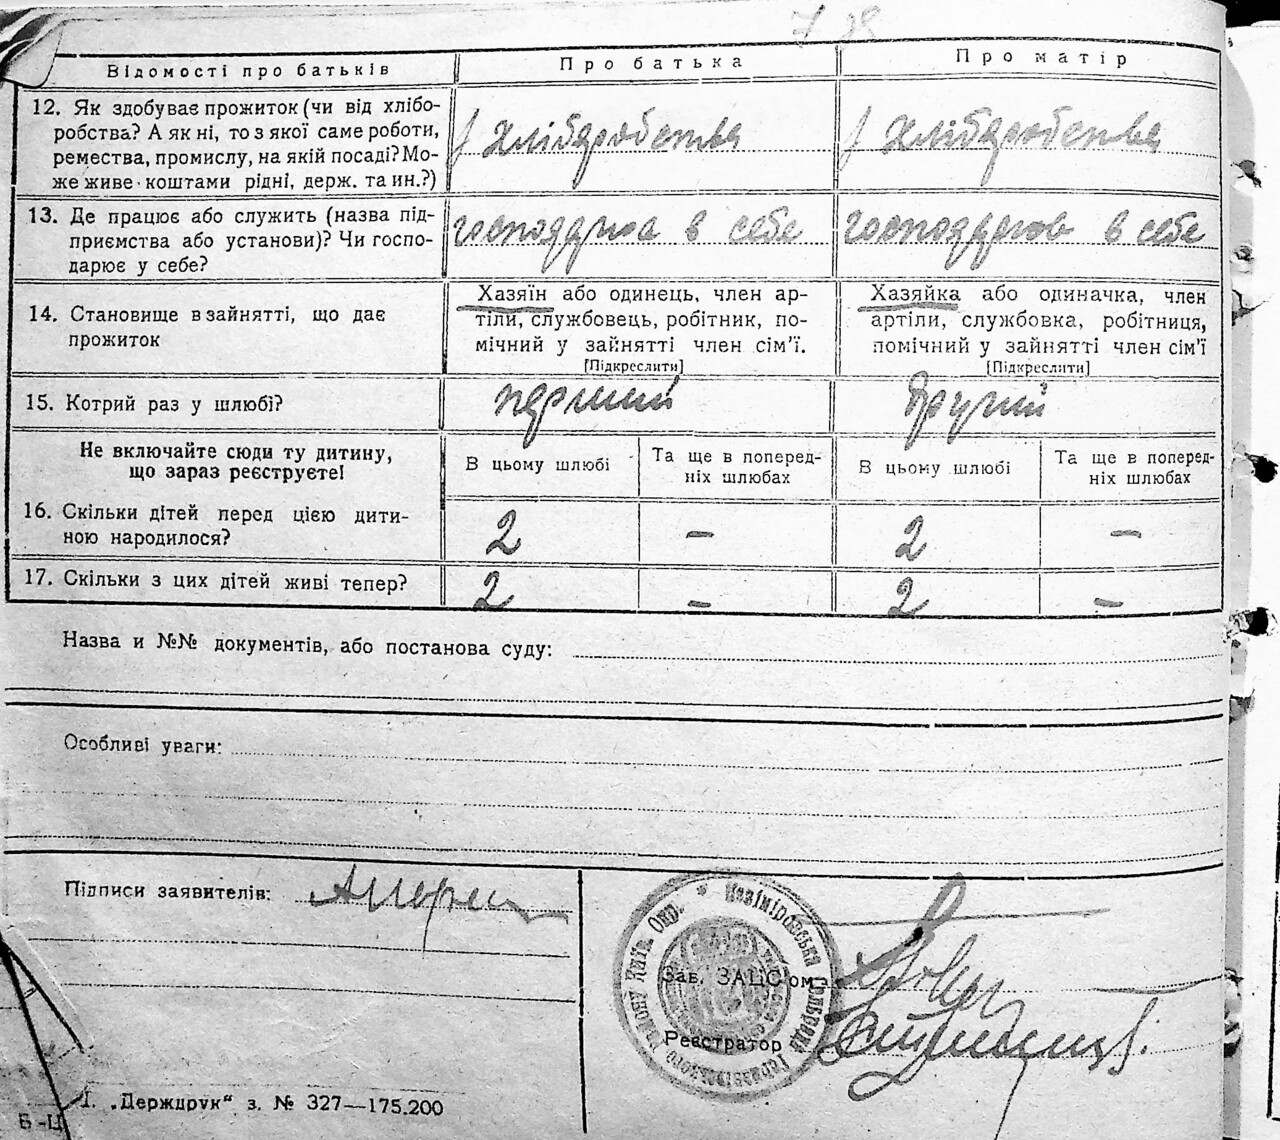 Відомості про батьків
Про батька
Про матір
12. Як здобуває прожиток (чи від хлібо-
робства? А як ні, то з якої саме роботи,
ремества, промислу, на якій посаді? Мо-
же живе коштами рідні, держ. та ин.?)
з хліборобства
з хліборобства
13. Де працює або служить (назва під-
приємства або установи)? Чи госпо-
дарює у себе?
господарює в себе
господарює в себе
14. Становище в зайнятті, що дає
прожиток
Хазяїн або одинець, член ар-
тілі, службовець, робітник, по-
мічний у зайнятті член сім'ї.
[Підкреслити]
Хазяйка або одиначка, член
артіли, службовка, робітниця,
помічний у зайнятті член сім'ї
[Підкреслити]
15. Котрий раз у шлюбі?
перший
другий
Не включайте сюди ту дитину,
що зараз реєструєте!
В цьому шлюбі
Та ще в поперед-
ніх шлюбах
В цьому шлюбі
Та ще в поперед-
ніх шлюбах
16. Скільки дітей перед цією дити-
ною народилося?
2 — 2 —
17. Скільки з цих дітей живі тепер?
2 — 2 —
Назва и №№ документів, або постанова суду:
Особливі уваги:
Підписи заявителів:
Зав. ЗАЦС'ом
Реєстратор
І. „Держдрук“ з. № 327—175.200
Б-Ц